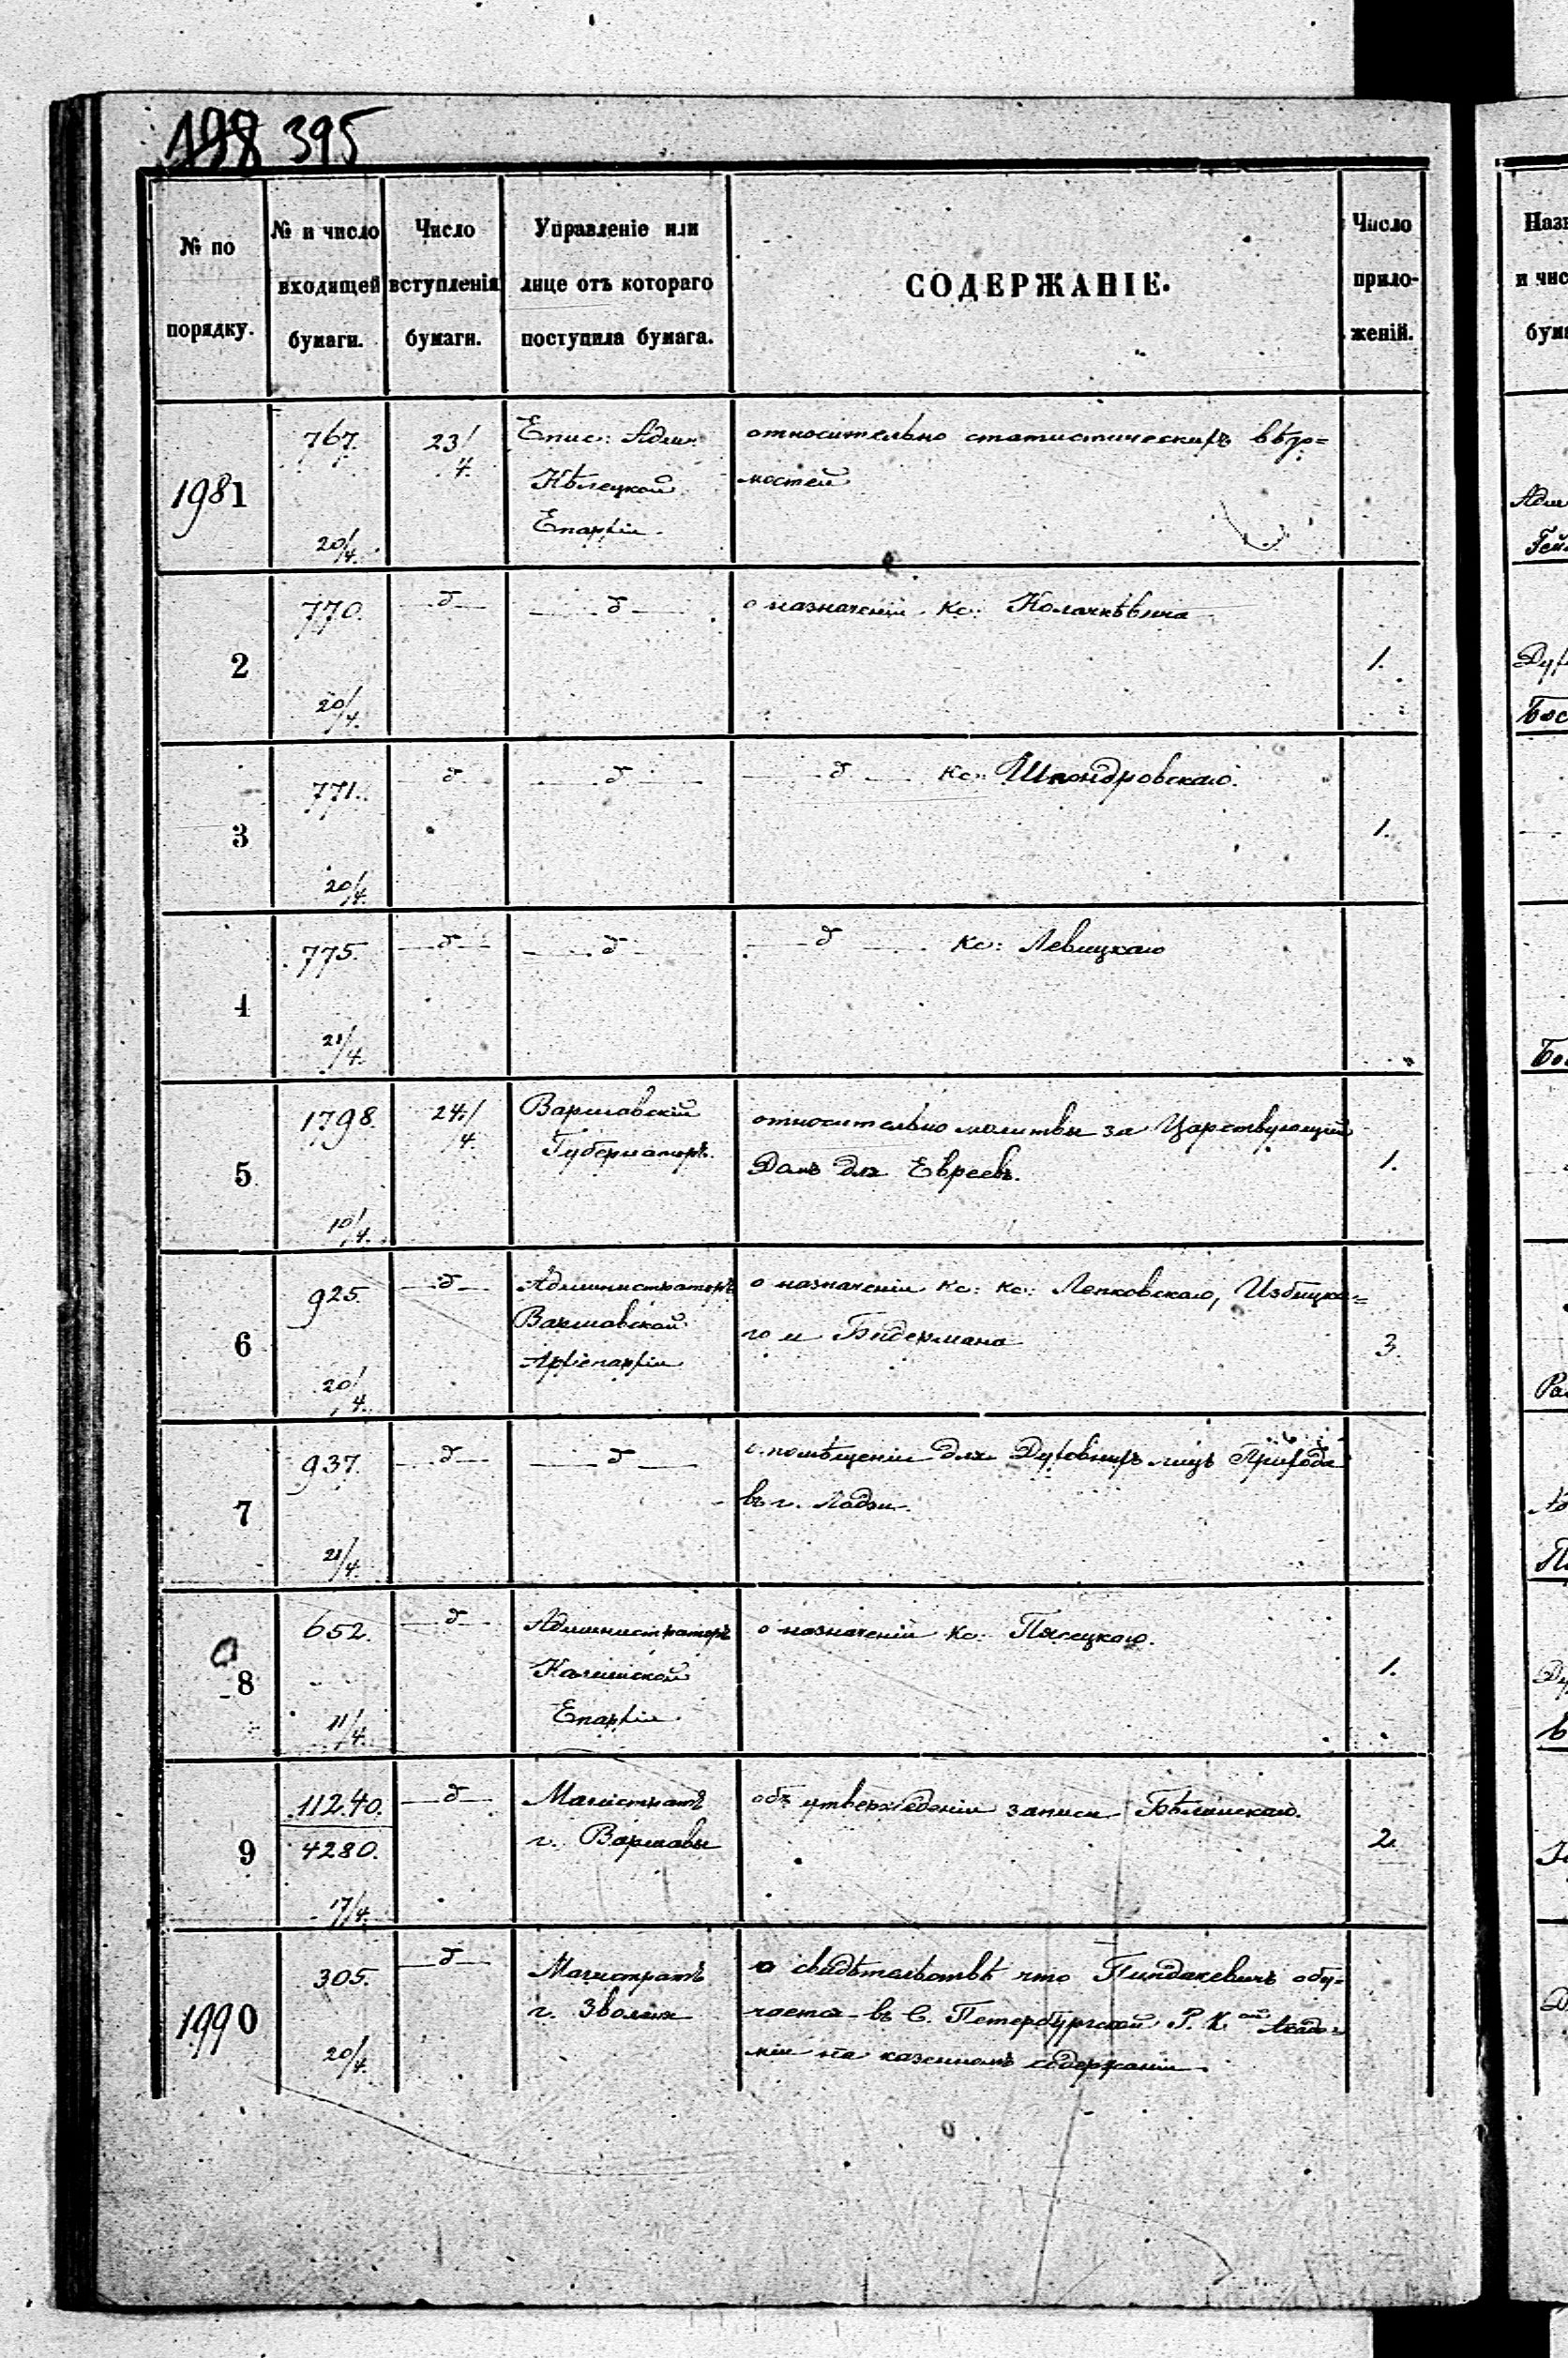 198 395
№ по порядку.
№ и число входящей бумаги.
Число вступленія бумаги.
Управленіе или лице отъ котораго поступила бумага.
СОДЕРЖАНІЕ.
Число приложеній.
1981
767.
20/4.
23/4.
Епис: Адм:
Кѣлецкой
Епархіи
относительно статистическихъ вѣдо=
мостей
2
770.
20/4.
— д —
— д —
о назначеніи Кс:
1.
3
771.
20/4.
д
— д —
— д — Кс: Шпондровскаго.
1.
4
775.
21/4.
— д —
— д —
— д — Кс: Левицкаго
5
1798.
10/4.
24/4.
Варшавскій
Губернаторъ.
относительно молитвы за Царствующій
Домъ для Евреевъ.
1.
6
925.
20/4.
— д —
Администраторъ
Варшавской
Архіепархіи
о назначеніи Кс: Кс: Лепковскаго, Избицка=
го и Бидермана
3.
7
937.
21/4.
— д —
— д —
о помѣщеніи для Духовныхъ лицъ Прихода
въ г. Лодзи.
8
652.
11/4.
— д —
Администраторъ
Калишской
Епархіи
о назначеніи Кс: Пясецкаго.
1.
9
11240.
4280.
17/4.
— д —
Магистратъ
г. Варшавы
объ утвержденіи записи Бѣлинскаго.
2.
1990
305.
20/4.
— д —
Магистратъ
г. Зволень
о свидѣтельствѣ что обу=
чается въ С. Петербургской Р. К.ой Акаде=
міи на казенномъ содержаніи.